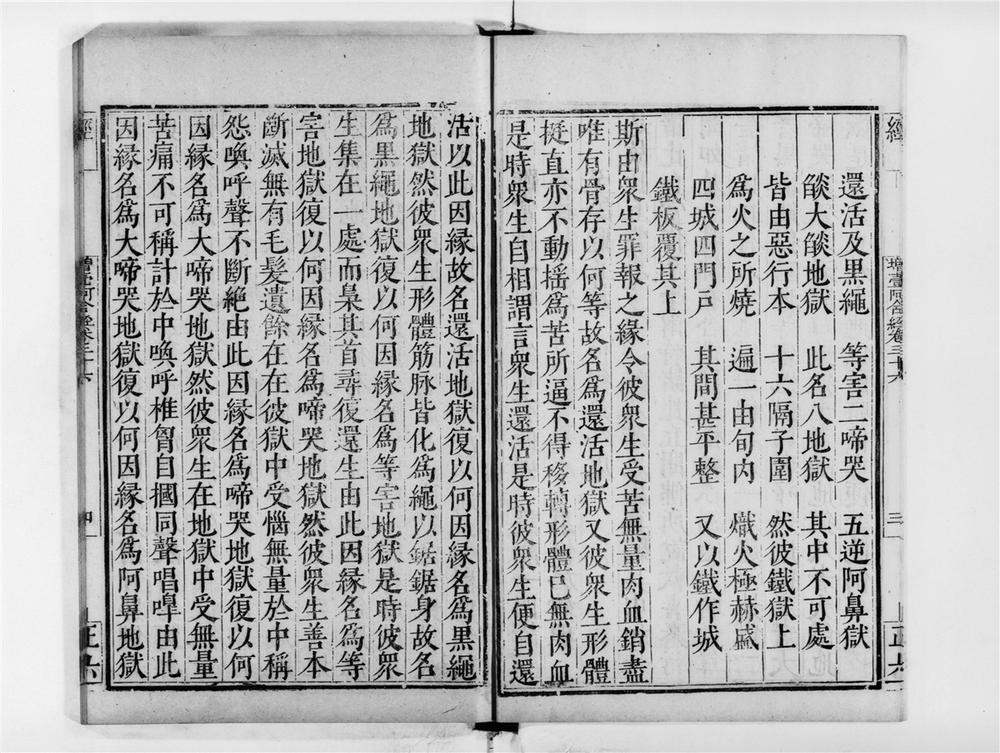 還活及黑繩　等害二啼哭　五逆阿鼻獄
燄大燄地獄　此名八地獄　其中不可處
皆由惡行本　十六隔子圍　然彼鐵獄上
爲火之所燒　遍一由旬內　熾火極赫盛
四城四門戸　其間甚平整　又以鐵作城
鐵板覆其上
斯由衆生罪報之緣令彼衆生受苦無量肉血銷盡
唯有骨存以何等故名爲還活地獄又彼衆生形體
挺直亦不動搖爲苦所逼不得移轉形體已無肉血
是時衆生自相謂言衆生還活是時彼衆生便自還
活以此因緣故名還活地獄復以何因緣名爲黑繩
地獄然彼衆生形體筋脉皆化爲繩以鋸鋸身故名
爲黑繩地獄復以何因緣名爲等害地獄是時彼衆
生集在一處而梟其首尋復還生由此因緣名爲等
害地獄復以何因緣名爲啼哭地獄然彼衆生善本
斷滅無有毛髮遺餘在在彼獄中受惱無量於中稱
怨喚呼聲不斷絕由此因緣名爲啼哭地獄復以何
因緣名爲大啼哭地獄然彼衆生在地獄中受無量
苦痛不可稱計於中喚呼椎胷自摑同聲唱嘷由此
因緣名爲大啼哭地獄復以何因緣名爲阿鼻地獄
經
增壹阿含經卷三十六
三
正六
經
增壹阿含經卷三十六
四
正六